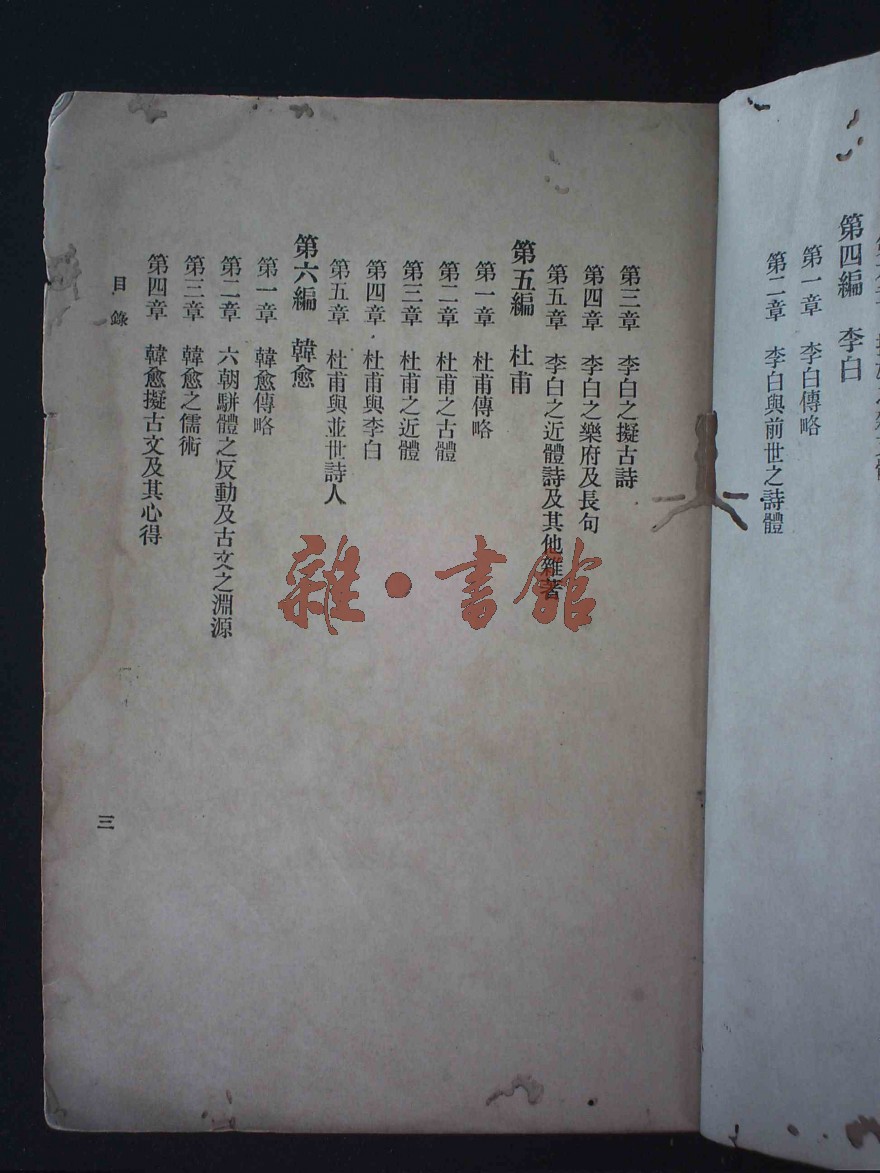 第四編　李白
第一章　李白傳略
第二章　李白與前世之詩體
第三章　李白之擬古詩
第四章　李白之樂府及長句
第五章　李白之近體詩及其他雜著
第五編　杜甫
第一章　杜甫傳略
第二章　杜甫之古體
第三章　杜甫之近體
第四章　杜甫與李白
第五章　杜甫與並世詩人
第六編　韓愈
第一章　韓愈傳略
第二章　六朝駢體之反動及古文之淵源
第三章　韓愈之儒術
第四章　韓愈擬古文及其心得
目錄
三
雜·書館